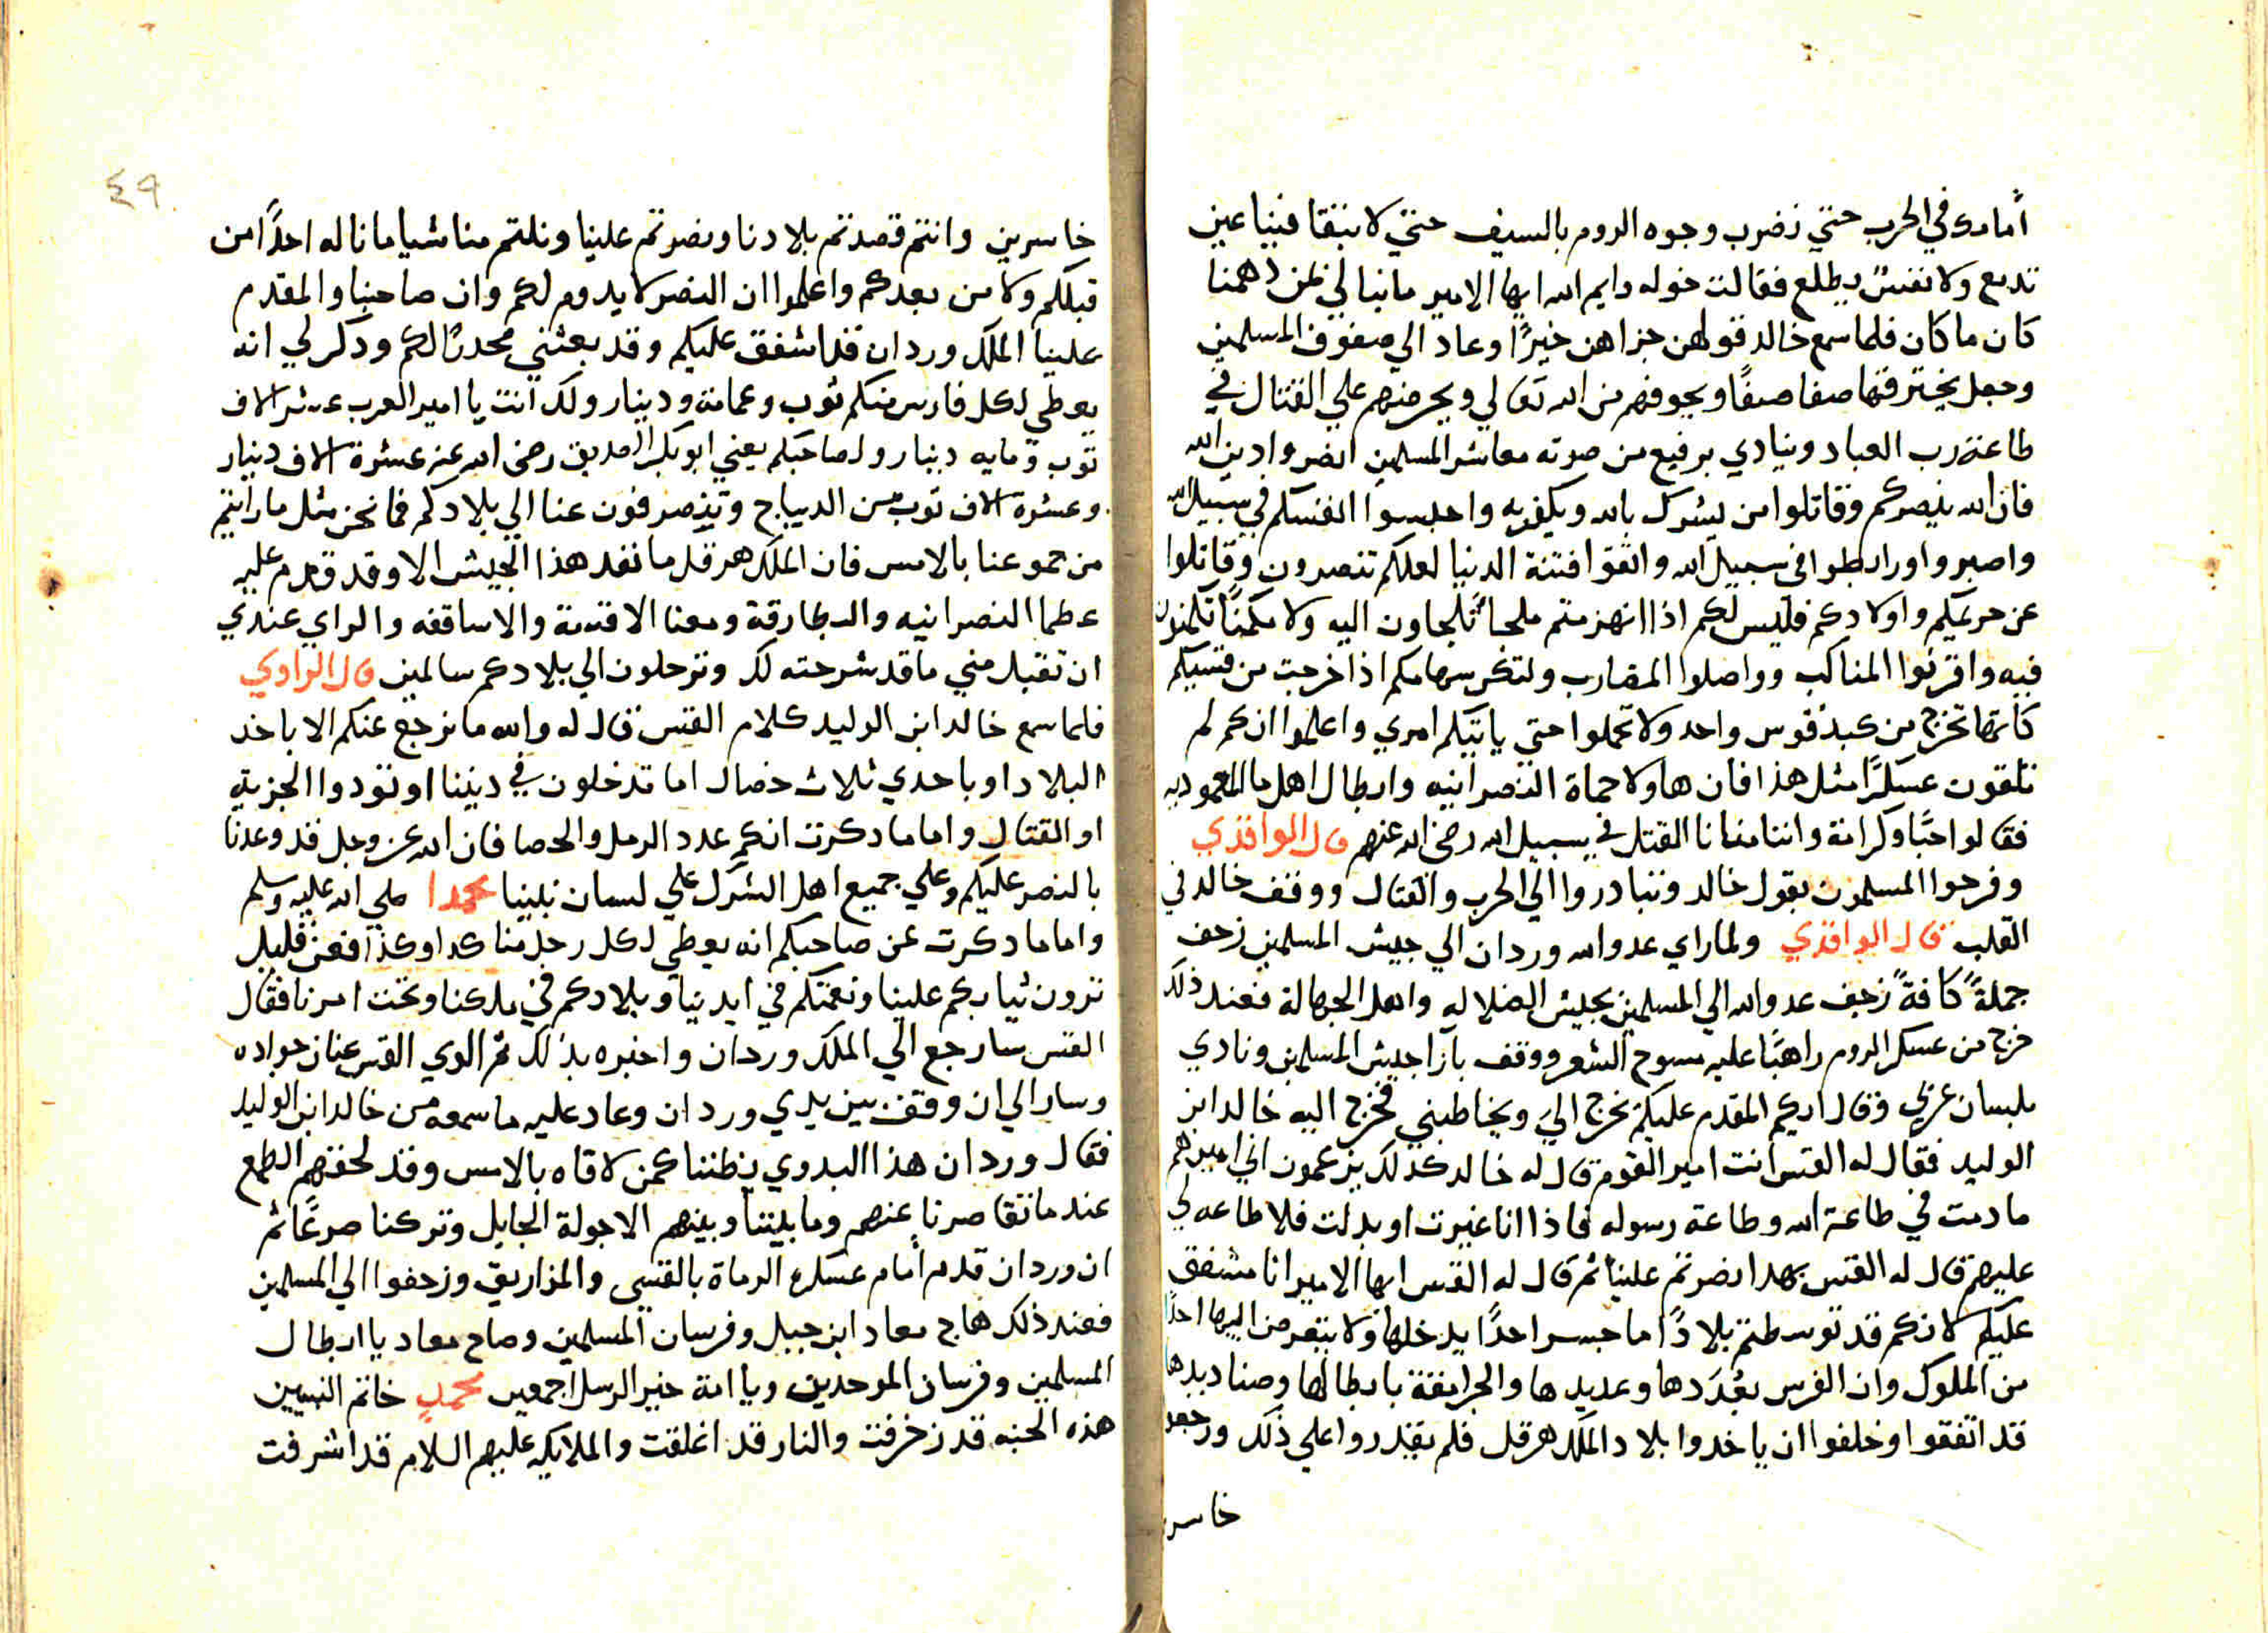 أمامك في الحرب حتي نضرب وجوه الروم بالسيف حتي لا تبقا فينا عين
تدمع ولا نفسٌ يطلع فقالت خوله وايم الله ايها الامير ما نبالي لمن دهمنا
كان ما كان فلما سمع خالد قولهن جزاهن خيرًا وعاد الي صفوف المسلمين
وجعل يخترقها صفا صفًا ويخوفهم من الله تعالي ويحرضهم علي القتال في
طاعة رب العباد وينادي برفيع من صوته معاشر المسلمين انصروا دين الله
فان الله ينصركم وقاتلوا من يشرك بالله ويكفر به واحبسوا انفسكم في سبيل الله
واصبروا ورابطوا في سبيل الله واتقوا فتنة الدنيا لعلكم تنصرون وقاتلوا
عن حريمكم واولادكم فليس لكم اذا انهزمتم ملجأً تلجاون اليه ولا مكمنًا تكمنون
فيه واقرنوا المناكب وواصلوا المضارب ولتكن سهامكم اذا خرجت من قسيكم
كأنها تخرج من كبد قوس واحد ولا تحملوا حتي ياتيكم امري واعلموا انكم لم
تلقون عسكرًا مثل هذا فان هاولا حماة النصرانيه وابطال اهل ما المعموديه
فقالوا حبًا وكرامة واننا منانا القتل في سبيل الله رضي الله عنهم قال الواقدي
وفرحوا المسلمون بقول خالد وتبادروا الي الحرب والقتال ووقف خالد في
القلب قال الواقدي ولما راي عدو الله وردان الي جيش المسلمين زحف
جملةً كافةً زحف عدو الله الي المسلمين بجيش الضلاله واهل الجهالة فعند ذلك
خرج من عسكر الروم راهبًا عليه مسوح الشعر ووقف بآزا جيش المسلمين ونادي
بلسان عربي وقال ايكم المقدم عليكم يخرج الي ويخاطبني فخرج اليه خالد ابن
الوليد فقال له القس انت امير القوم قال له خالد كذلك يزعمون اني اميرهم
ما دمت في طاعة الله وطاعة رسوله فاذا انا غيرت او بدلت فلا طاعه لي
عليهم قال له القس بهدا نصرتم علينا ثم قال له القس ايها الامير انا مشفق
عليكم لانكم قد توسطتم بلادًا ما جسر احدًا يدخلها ولا يتعرض اليها احدًا
من الملوك وان الفرس بعُدَدها وعديدها والجرامقة بابطالها وصناديدها
قد اتفقوا وحلفوا ان ياخدوا بلاد الملك هرقل فلم يقدروا علي ذلك ورجعو
خاسر
٤٩
خاسرين وانتم قصدتم بلادنا ونصرتم علينا ونلتم منا شيا ما ناله احدًا من
قبلكم ولا من بعدكم واعلموا ان النصر لا يدوم لكم وان صاحبنا والمقدم
علينا الملك وردان قد اشفق عليكم وقد بعثني محدثًا لكم ودكر لي انه
يعطي لكل فارس منكم ثوب وعمامة ودينار ولك انت يا امير العرب عشر الاف
ثوب وماية دينار ولصاحبكم يعني ابو بكر الصديق رضي الله عنه عشرة الاف دينار
وعشرة الاف ثوب من الديباج وتنصرفون عنا الي بلادكم فما نحن مثل ما رايتم
من جموعنا بالامس فان الملك هرقل ما نفد هذا الجيش الا وقد قدم عليه
عظما النصرانيه والبطارقة ومعنا الاقسة والاساقفه والراي عندي
ان تقبل مني ما قد شرحته لك وترحلون الي بلادكم سالمين قال الراوي
فلما سمع خالد ابن الوليد كلام القس قال له والله ما نرجع عنكم الا باخد
البلاد او باحدي ثلاث خصال اما تدخلون في ديننا او تودوا الجزيه
او القتال واما ما دكرت انكم عدد الرمل والحصا فان الله عز وجل قد وعدنا
بالنصر عليكم وعلي جميع اهل الشرك علي لسان نبينا محمدا صلي الله عليه وسلم
واما ما دكرت عن صاحبكم انه يعطي لكل رجل منا كدا وكذا فعن قليل
ترون ثيابكم علينا ونعمتكم في ايدينا وبلادكم في ملكنا وتحت امرنا فقال
القس سارجع الي الملك وردان واخبره بذلك ثم الوي القس عنان جواده
وسار الي ان وقف بين يدي وردان وعاد عليه ما سمعه من خالد ابن الوليد
فقال وردان هذا البدوي يظننا كمن لاقاه بالامس وقد لحقهم الطمع
عند ما تقاصرنا عنهم وما بيننا وبينهم الا جولة الجايل وتركنا صرعًا ثم
ان وردان قدم أمام عسكره الرماة بالقسي والمزاريق وزحفوا الي المسلمين
فعند ذلك هاج معاد ابن جبل وفرسان المسلمين وصاح معاد يا ابطال
المسلمين وفرسان الموحدين ويا امة خير الرسل اجمعين محمدٍ خاتم النبيين
هذه الجنه قد زخرفت والنار قد اغلقت والملايكه عليهم السلام قد اشرفت